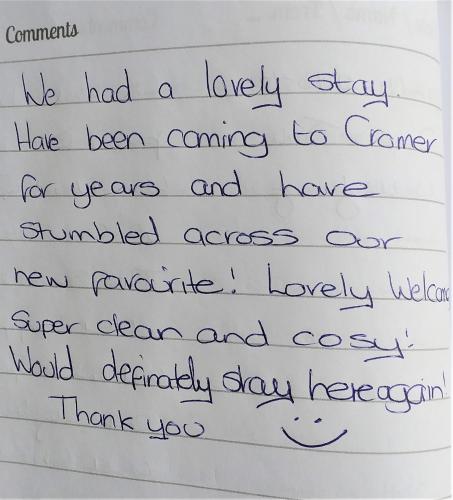 Comments
We had a lovely stay.
Have been coming to Cromer
for years and have
stumbled across our
new favourite! Lovely Welcom
Super clean and cosy!
Would definately stay here again!
Thank you